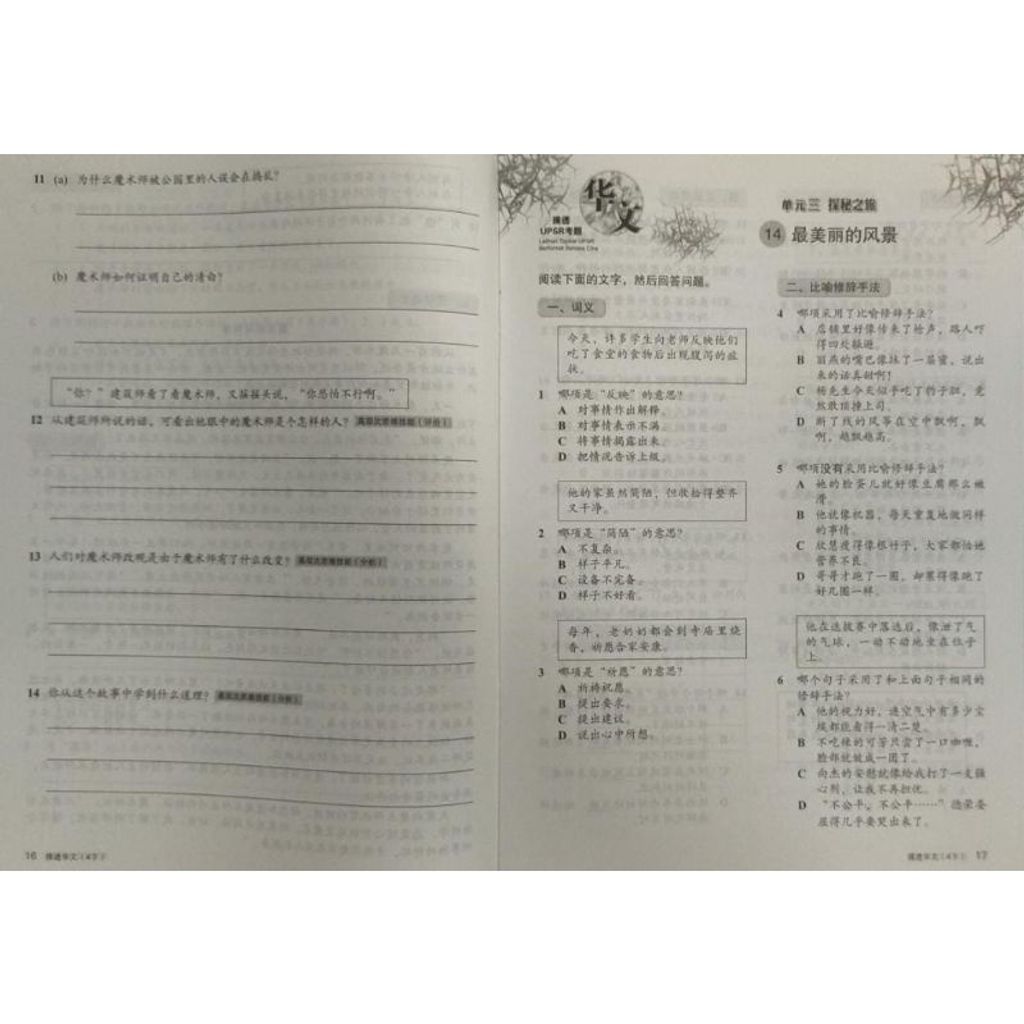 11 (a) 为什么魔术师被公园里的人误会在捣乱?
(b) 魔术师如何证明自己的清白?
“你?”建筑师看了看魔术师,又摇摇头说,“你恐怕不行啊。”
12 从建筑师所说的话,可看出他眼中的魔术师是个怎样的人? 高层次思维技能(评价)
13 人们对魔术师改观是由于魔术师有了什么改变? 高层次思维技能(分析)
14 你从这个故事中学到什么道理? 高层次思维技能(分析)
16
华文
UPSR考题
阅读下面的文字,然后回答问题。
一、词义
今天,许多学生向老师反映他们
吃了食堂的食物后出现腹泻的症
状。
1 哪项是“反映”的意思?
A 对事情作出解释。
B 对事情表示不满。
C 将事情揭露出来。
D 把情况告诉上级。
他的家虽然简陋,但收拾得整齐
又干净。
2 哪项是“简陋”的意思?
A 不复杂。
B 样子平凡。
C 设备不完备。
D 样子不好看。
每年,老奶奶都会到寺庙里烧
香,祈愿合家安康。
3 哪项是“祈愿”的意思?
A 祈祷祝愿。
B 提出要求。
C 提出建议。
D 说出心中所想。
单元三 探秘之旅
14 最美丽的风景
二、比喻修辞手法
4 哪项采用了比喻修辞手法?
A 店铺里好像传来了枪声,路人吓
得四处躲避。
B 丽燕的嘴巴像抹了一层蜜,说出
来的话真甜啊!
C 杨先生今天似乎吃了豹子胆,竟
然敢顶撞上司。
D 断了线的风筝在空中飘啊,飘
啊,越飘越高。
5 哪项没有采用比喻修辞手法?
A 她的脸蛋儿就好像豆腐那么嫩
滑。
B 他就像机器,每天重复地做同样
的事情。
C 欣慧瘦得像根竹子,大家都怕她
营养不良。
D 哥哥才跑了一圈,却累得像跑了
好几圈一样。
他在选拔赛中落选后,像泄了气
的气球,一动不动地坐在位子
上。
6 哪个句子采用了和上面句子相同的
修辞手法?
A 他的视力好,连空气中有多少尘
埃都能看得一清二楚。
B 不吃辣的可芳只尝了一口咖喱,
脸部就皱成一团了。
C 向杰的安慰就像给我打了一支强
心剂,让我不再担忧。
D “不公平,不公平……”德荣委
屈得几乎要哭出来了。
17